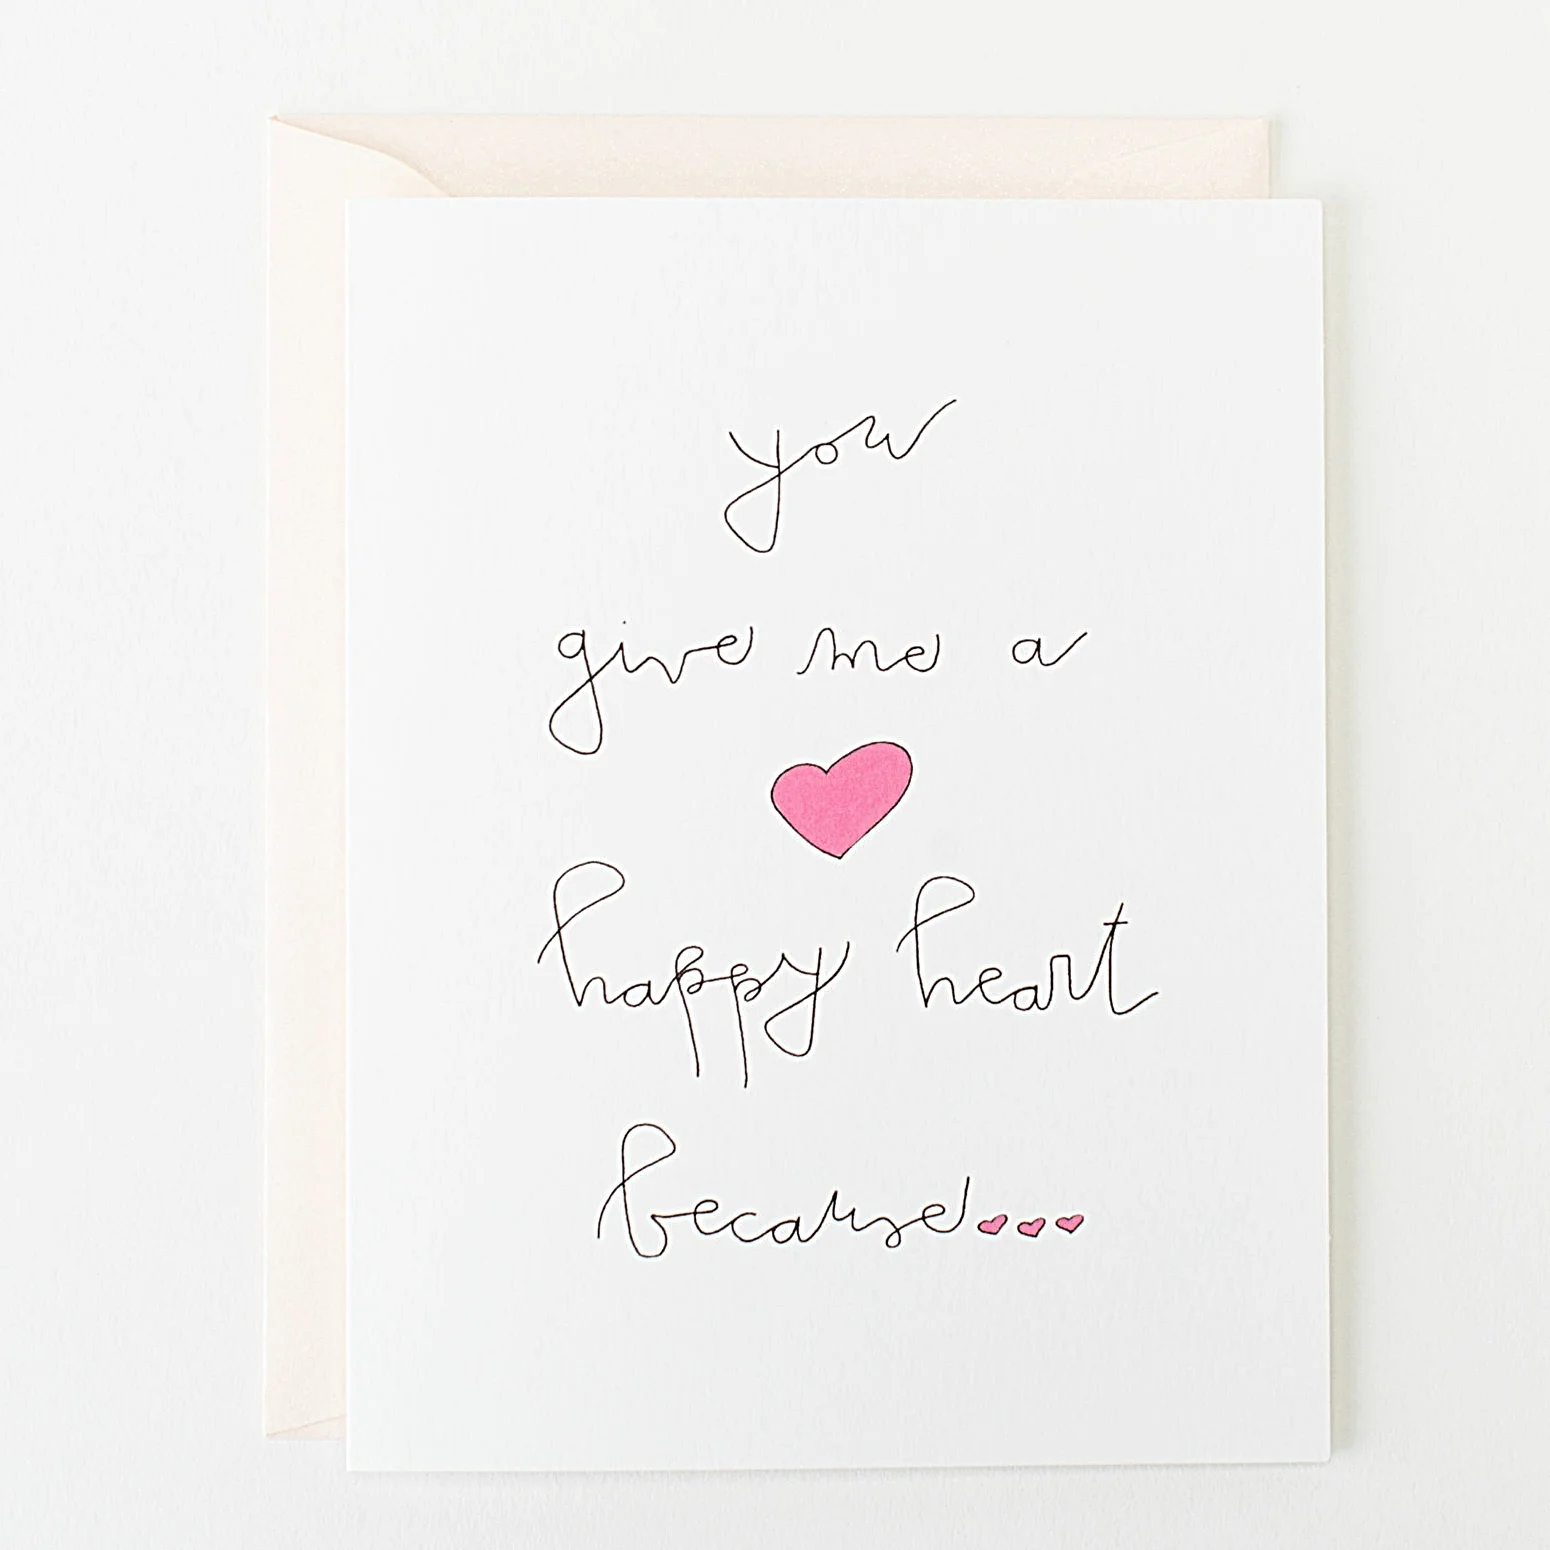 you
give me a
happy heart
because...